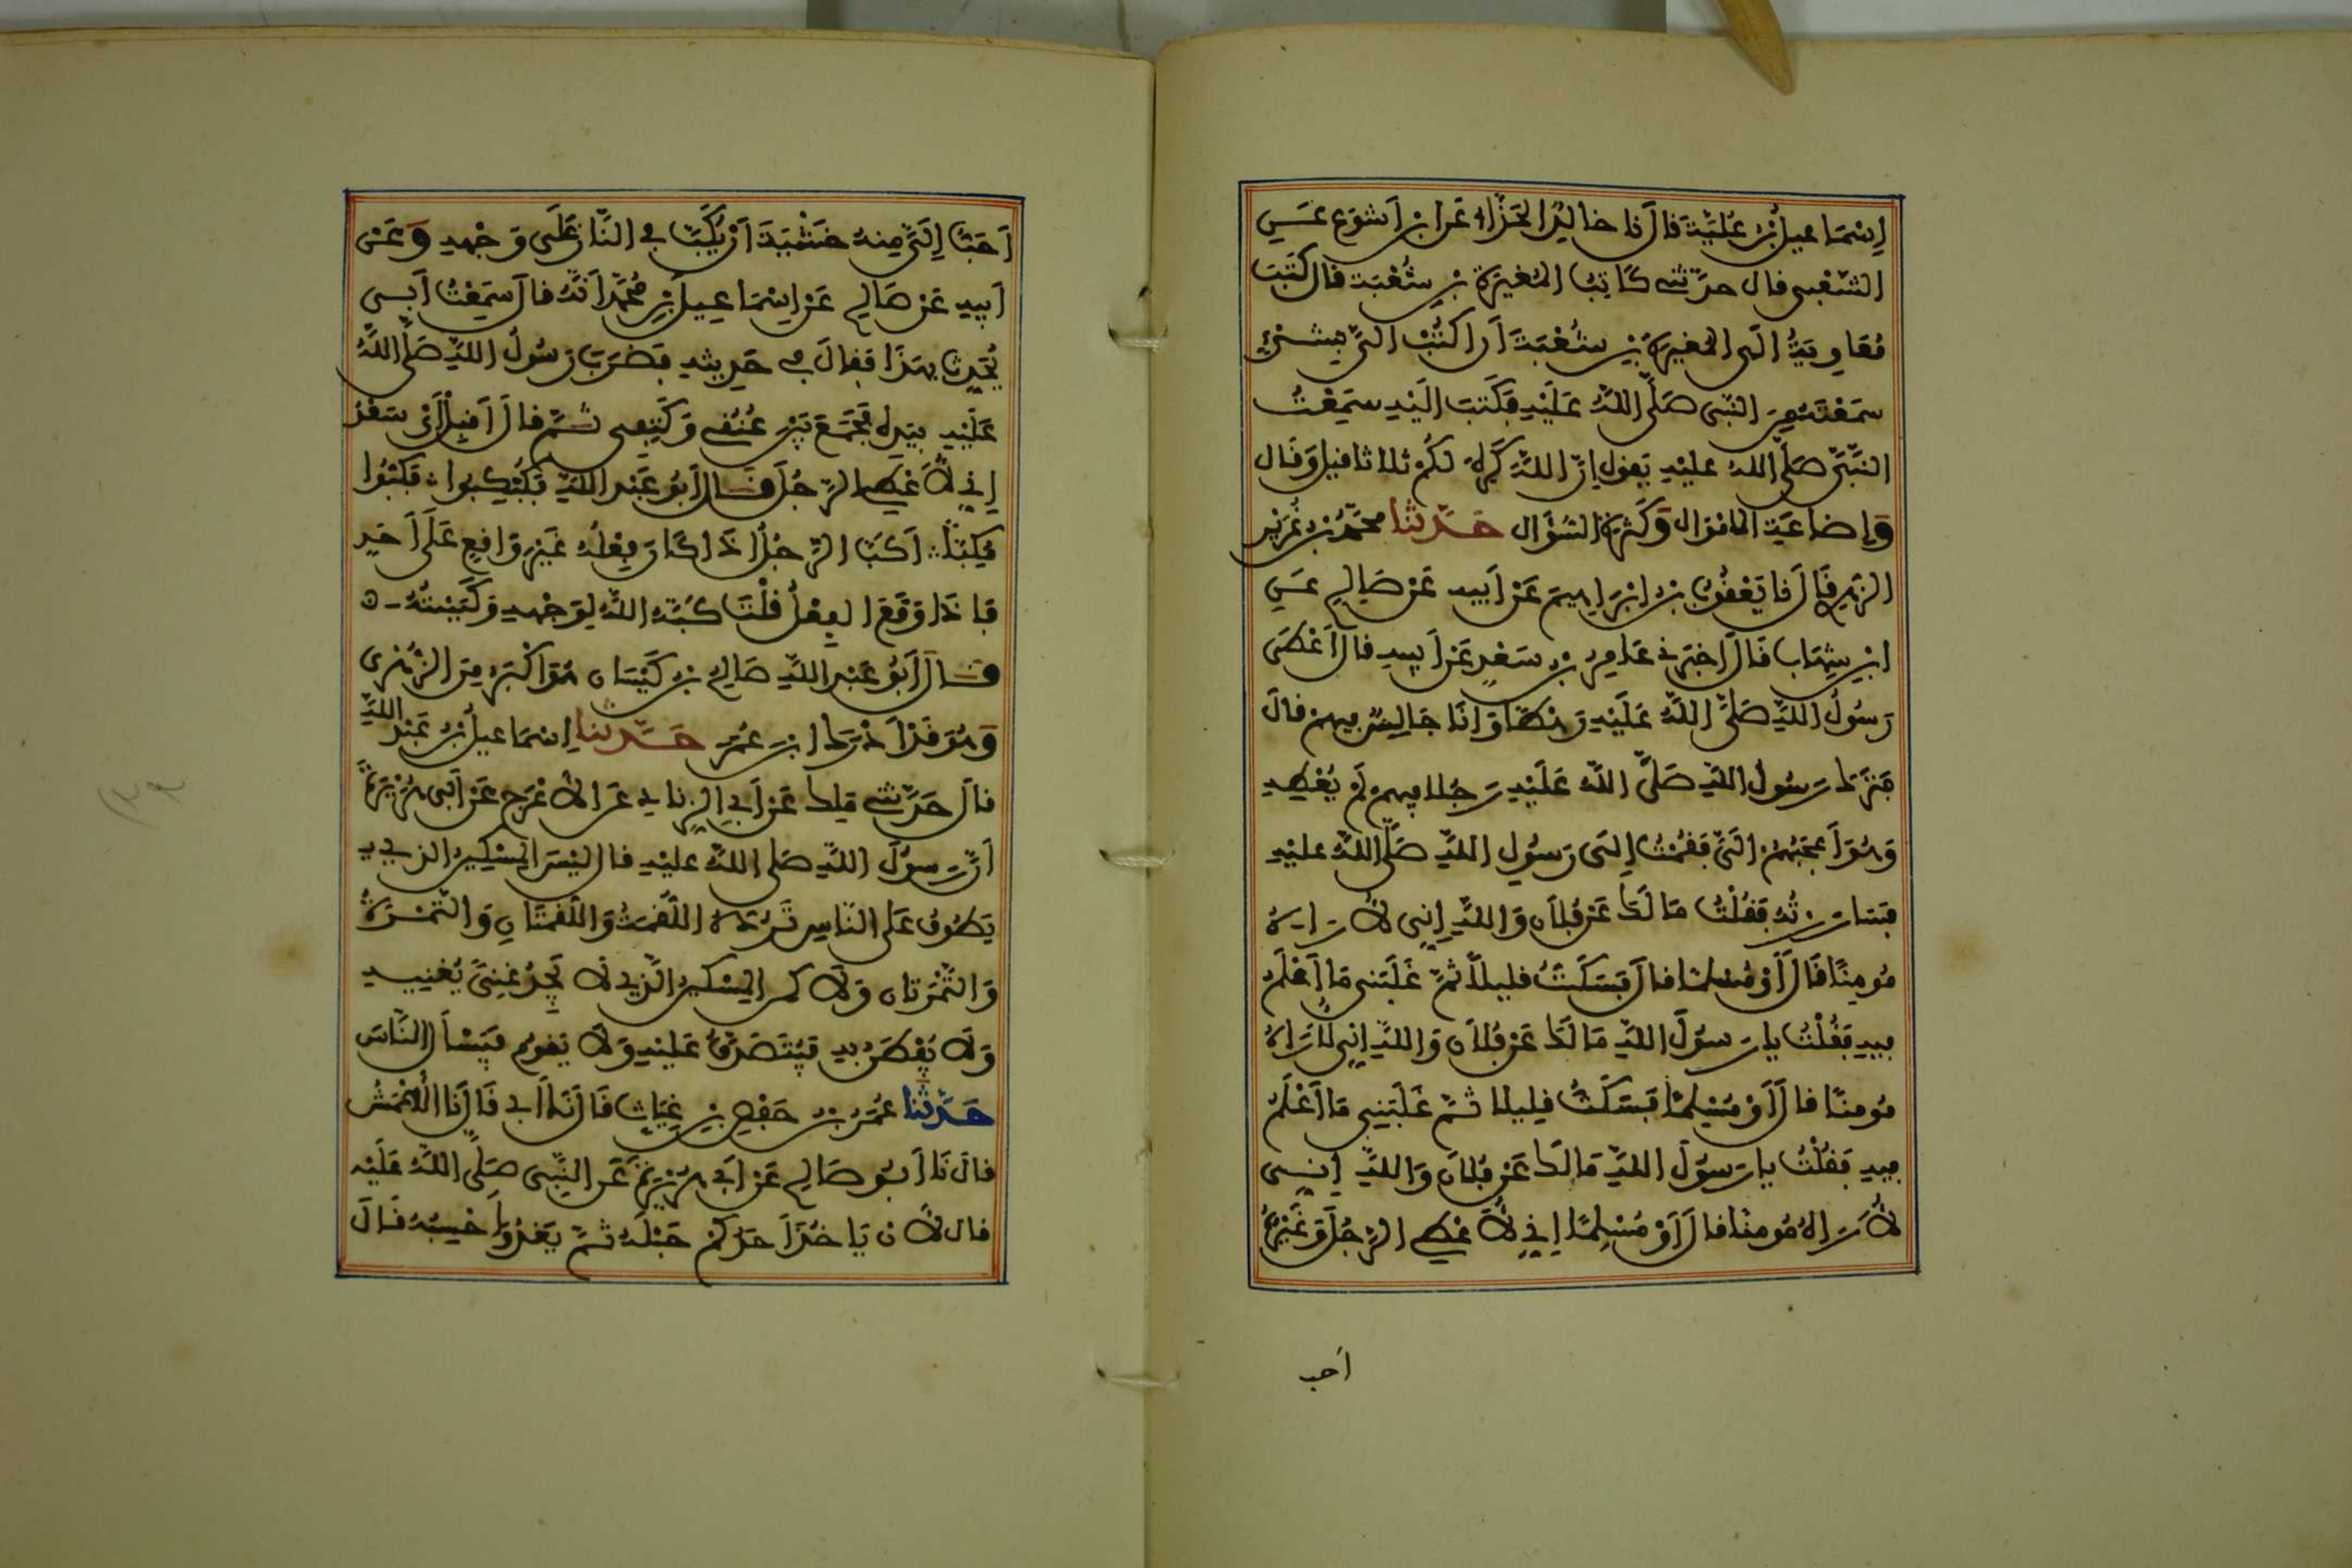 إِسْمَاعِيلُ بْنُ عُلَيَّةَ قَالَ نَا خَالِدٌ الْحَذَّاءُ عَنِ ابْنِ أَشْوَعَ عَنِ
الشَّعْبِي قال حدّثني كَاتِبُ الْمُغِيرَةِ بْنِ شُعْبَة قال كَتَبَ
مُعَاوِيَةُ إِلَى الْمُغِيرَةِ بْنِ شُعْبَةَ أَنِ اكْتُبْ إِلَيَّ بِشَيْءٍ
سَمِعْتَهُ مِنَ النَّبِي صَلَّى اللَّهُ عَلَيْهِ فَكَتَبَ إِلَيْهِ سَمِعْتُ
النَّبِيَّ صَلَّى اللهُ عليْهِ يَقول إنّ اللَّهَ كَرِهَ لكُمْ ثلاثا قيل وَقَال
وَإِضاعَةَ المَالِ وَكَثْرَةَ السُّؤَال حَدَّثَنَا محمّدُ بْنُ غُرَيْرٍ
الزُّهْرِي قَالَ نا يَعْقُوبُ بْنُ إِبْرَاهِيمَ عَنْ أَبِيهِ عَنْ صَالِحٍ عَنِ
ابْنِ شِهَابٍ قَالَ أَخْبَرَنِي عَامِرُ بْنُ سَعْدٍ عَنْ أَبِيهِ قال أَعْطَى
رَسُولُ اللَّهِ صَلَّى اللَّهُ عَلَيْهِ رَهْطًا وَأَنَا جَالِسٌ فِيهِمْ قالَ
فَتَرَكَ رَسُولُ اللَّهِ صَلَّى اللَّهُ عَلَيْهِ رَجُلا فِيهِمْ لَمْ يُعْطِهِ
وَهُوَ أَعْجَبُهُمْ إِلَيَّ فَقُمْتُ إِلَى رَسُولِ اللَّهِ صَلَّى اللَّهُ عليْهِ
فَسَارَرْتُهُ فَقُلْتُ مَا لَكَ عَنْ فُلَانٍ وَاللَّهِ إِنِّي لأُرَاهُ
مُومِنًا قَالَ أَوْ مُسْلِمًا قال فَسَكَتُّ قليلًا ثُمَّ غَلَبَنِي مَا أَعْلَمُ
فِيهِ فَقُلْتُ يا رَسُولَ اللَّهِ مَا لَكَ عَنْ فُلَانٍ وَاللَّهِ إِنِّي لَأُرَاهُ
مُومِنًا قالَ أَوْ مُسْلِمًا فَسَكَتُّ قَلِيلا ثُمَّ غَلَبَنِي مَا أَعْلَمُ
فِيهِ فَقُلْتُ يا رَسُولَ اللَّهِ مَا لَكَ عَنْ فُلَانٍ وَاللَّهِ إِنِّي
لَأُرَاهُ مُومِنًا قالَ أَوْ مُسْلِمًا إِنِّي لَأُعْطِي الرَّجُلَ وَغَيْرُهُ
أحب
أَحَبُّ إِلَيَّ مِنْهُ خَشْيَةَ أَنْ يُكَبَّ فِي النَّارِ عَلَى وَجْهِهِ وَعَنْ
أَبِيهِ عَنْ صَالِحٍ عَنْ إِسْمَاعِيلَ بْنِ مُحَمَّدٍ أَنَّهُ قَالَ سَمِعْتُ أَبِي
يُحَدِّثُ بِهَذَا فَقالَ فِي حَدِيثِهِ فَضَرَبَ رَسُولُ اللَّهِ صَلَّى اللَّهُ
عَلَيْهِ بِيَدِهِ فَجَمَعَ بَيْنَ عُنُقِي وَكَتِفِي ثُمَّ قالَ أَقْبِلْ أَيْ سَعْدُ
إِنِّي لَأُعْطِي الرَّجُلَ قَالَ أَبُو عَبْدِ اللَّهِ فَكُبْكِبُوا فَكُبُّوا
مُكِبًّا أَكَبَّ الرَّجُلُ إِذَا كَانَ فِعْلُهُ غَيْرَ وَاقِعٍ عَلَى أَحَدٍ
فَإِذَا وَقَعَ الْفِعْلُ قُلْتَ كَبَّهُ اللَّهُ لِوَجْهِهِ وَكَبَبْتُهُ
قَالَ أَبُو عَبْدِ اللَّهِ صَالِحُ بْنُ كَيْسَان هُوَ أَكْبَرُ مِنَ الزُّهْرِي
وَهُوَ قَدْ أَدْرَكَ ابْنَ عُمَرَ حَدَّثَنَا إِسْمَاعِيلُ بْنُ عَبْدِ اللَّهِ
قالَ حَدَّثَنِي مَلِكٌ عَنْ أَبِي الزِّنَادِ عَنِ الأَعْرَجِ عَنْ أَبِي هُرَيْرَةَ
أَنَّ رَسُولَ اللَّهِ صَلى اللَّهُ عَليْهِ قال لَيْسَ الْمِسْكِينُ الَّذِي
يَطُوفُ عَلَى النَّاسِ تَرُدُّهُ اللُّقْمَةُ وَاللُّقْمَتَانِ وَالتَّمْرَةُ
وَالتَّمْرَتَانِ وَلَاكِنِ الْمِسْكِينُ الَّذِي لَا يَجِدُ غِنًى يُغْنِيهِ
وَلَا يُفْطَنُ بِهِ فَيُتَصَدَّقُ عَلَيْهِ وَلَا يَقُومُ فَيَسْأَلُ النَّاسَ
حَدَّثَنَا عُمَرُ بْنُ حَفْصِ بْنِ غِيَاثٍ قَالَ نَا أَبِي قَالَ نَا الْأَعْمَشُ
قالَ نَا أَبُو صَالِحٍ عَنْ أَبِي هُرَيْرَةَ عَنِ النَّبِي صَلَّى اللَّهُ عَلَيْهِ
قال لَأَنْ يَاخُذَ أَحَدُكُمْ حَبْلَهُ ثُمَّ يَغْدُو أَحْسِبُهُ قَالَ